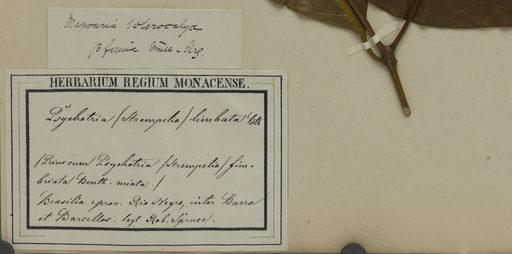 Mapouria sclerocalyx
β firma Müll. Arg.
HERBARIUM REGIUM MONACENSE.
Psychotria (Strempelia) limbata Bth
/Prius cum Psychotria (Strempelia) fim-
briata Benth. mixta./
Brasilia, prov. Rio Negro, inter Barra
et Barcellos. legt Rob. Spruce.